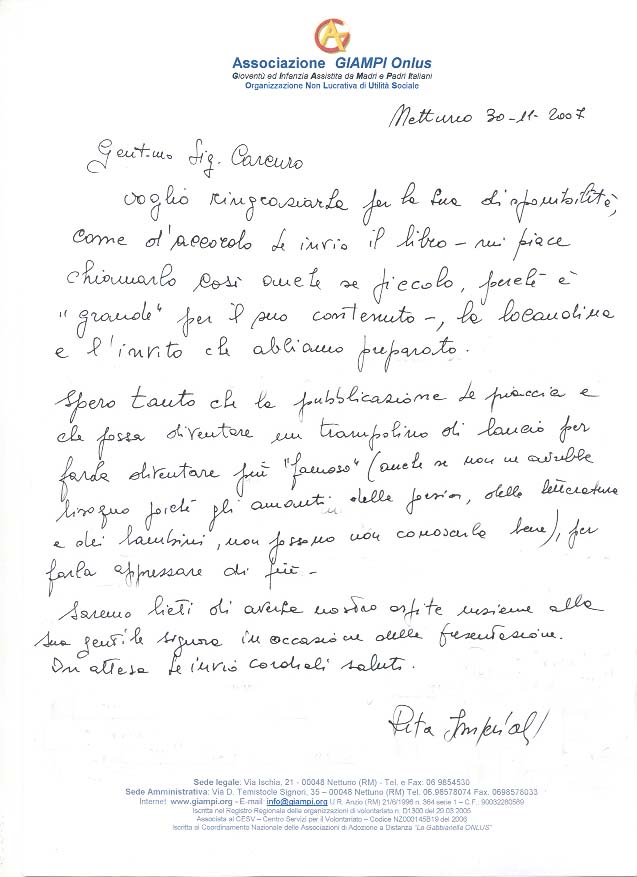 Associazione GIAMPI Onlus
Gioventù ed Infanzia Assistita da Madri e Padri Italiani
Organizzazione Non Lucrativa di Utilità Sociale
Nettuno 30-11-2007
Gent.mo Sig. Carcuro
voglio ringraziarLa per la Sua disponibilità,
come d'accordo Le invio il libro - mi piace
chiamarlo così anche se piccolo, perché è
"grande" per il suo contenuto -, la locandina
e l'invito che abbiamo preparato.
Spero tanto che la pubblicazione Le piaccia e
che possa diventare un trampolino di lancio per
farla diventare più "famoso" (anche se non ne avrebbe
bisogno poiché gli amanti della poesia, della letteratura
e dei bambini, non possono non conoscerla bene), per
farla apprezzare di più -
Saremo lieti di averLa nostro ospite insieme alla
Sua gentile signora in occasione della presentazione.
In attesa Le invio cordiali saluti.
Rita Imperiali
Sede legale: Via Ischia, 21 - 00048 Nettuno (RM) - Tel. e Fax: 06 9854530
Sede Amministrativa: Via D. Temistocle Signori, 35 – 00048 Nettuno (RM) Tel. 06.98578074 Fax. 0698578033
Internet www.giampi.org - E-mail: info@giampi.org U.R. Anzio (RM) 21/6/1996 n. 364 serie 1 – C.F.: 90032280589
Iscritta nel Registro Regionale delle organizzazioni di volontariato n. D1300 del 29.03.2005
Associata al CESV – Centro Servizi per il Volontariato – Codice NZ000145B19 del 2006
Iscritta al Coordinamento Nazionale delle Associazioni di Adozione a Distanza "La Gabbianella ONLUS"